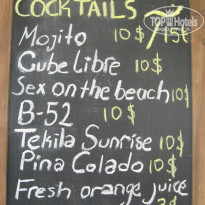 COCKTAILS
Mojito 10$/15$
Cube libre 10$
Sex on the beach 10$
B-52 10$
Tekila Sunrise 10$
Pina Colado 10$
Fresh orange juice
TOP Hotels